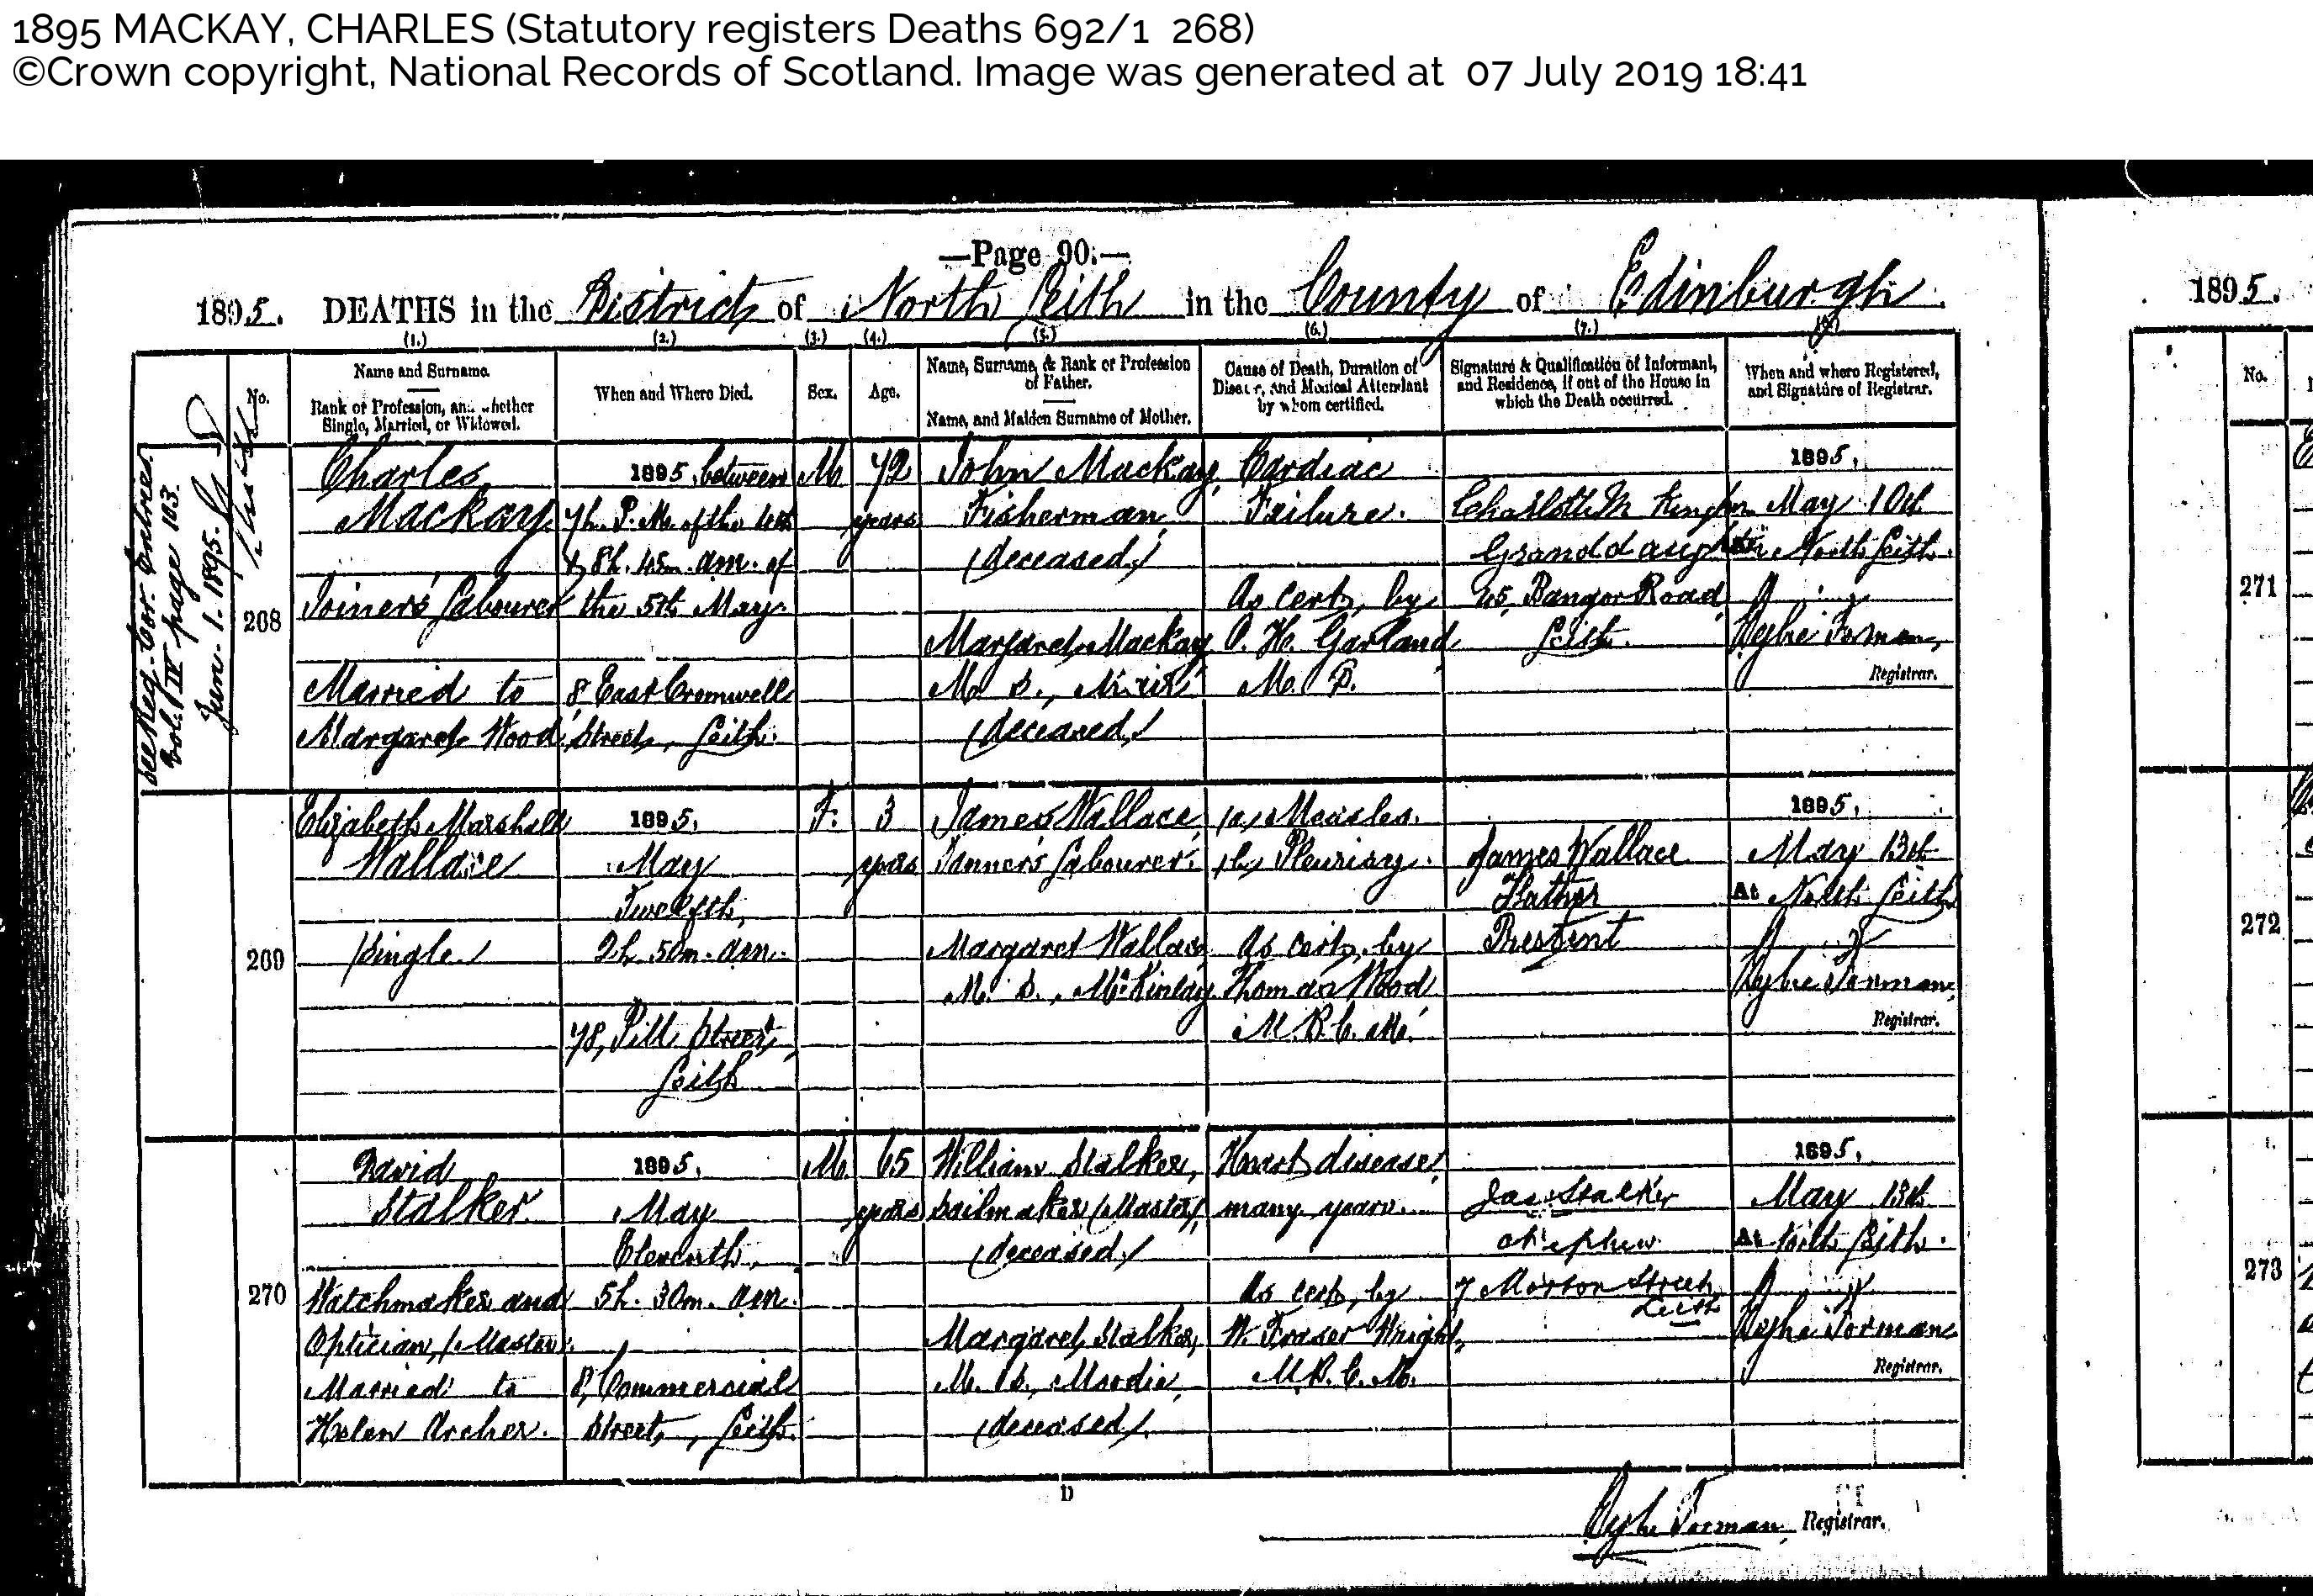 1895 MACKAY, CHARLES (Statutory registers Deaths 692/1 268)
©Crown copyright, National Records of Scotland. Image was generated at 07 July 2019 18:41
—Page 90.—
1895. DEATHS in the District of North Leith in the County of Edinburgh
1895.
(1.) (2.) (3.) (4.) (5.) (6.) (7.) (8.)
No.
Name and Surname.
Rank or Profession, and whether
Single, Married, or Widowed.
When and Where Died.
Sex.
Age.
Name, Surname, & Rank or Profession
of Father.
Name, and Maiden Surname of Mother.
Cause of Death, Duration of
Disease, and Medical Attendant
by whom certified.
Signature & Qualification of Informant,
and Residence, if out of the House in
which the Death occurred.
When and where Registered,
and Signature of Registrar.
No.
Cor. Entries
Vol. IV page 103.
June 1. 1895.
268
Charles
Mackay
Joiner's Labourer
Married to
Margaret Wood
1895, between
7h. P.M. of the 4th
& 8h. 45m. a.m. of
the 5th May
8 East Cromwell
Street, Leith.
M.
72
years
John Mackay,
Fisherman
(deceased)
Margaret Mackay
M. S.,
(deceased)
Cardiac
Failure.
As cert. by
Garland
M. D.
Granddaughter
Bangor Road
Leith.
1895,
May 10th
North Leith.
Forman,
Registrar.
269
Elizabeth Marshall
Wallace
Single
1895,
May
Twelfth,
2h. 50m. a.m.
78, Pitt Street,
Leith
F.
3
years
James Wallace,
Tanner's Labourer.
Margaret Wallace
M. S., McKinlay
(a) Measles.
(b) Pleurisy.
As cert. by
Thomas Wood
M.B.C.M.
James Wallace
Father
Present
1895,
May 13th
At North Leith
Forman,
Registrar.
270
David
Stalker
Watchmaker and
Optician, (Master)
Married to
Helen Archer.
1895,
May
Eleventh,
5h. 30m. a.m.
8, Commercial
Street, Leith.
M.
65
years
William Stalker,
Sailmaker (Master)
(deceased)
Margaret Stalker,
M. S., Moodie,
(deceased)
Heart disease,
many years.
As cert. by
W. Fraser Wright,
M.B.C.M.
Jas Stalker
Nephew
7 Morton Street
Leith
1895,
May 13th
At North Leith.
Forman
Registrar.
271
272
273
D
Forman, Registrar.